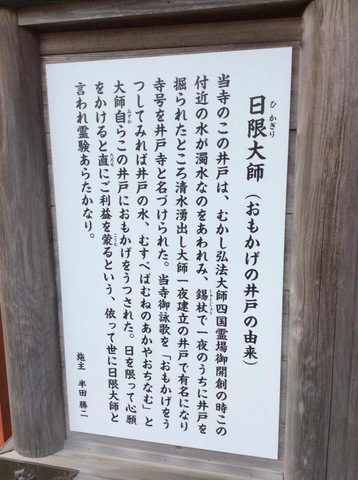 日限大師（おもかげの井戸の由来）
ひかぎり
当寺のこの井戸は、むかし弘法大師四国霊場御開創の時この
付近の水が濁水なのをあわれみ、錫杖で一夜のうちに井戸を
しゃくじょう
掘られたところ清水湧出し大師一夜建立の井戸で有名になり
寺号を井戸寺と名づけられた。当寺御詠歌を「おもかげをう
つしてみれば井戸の水、むすべばむねのあかやおちなむ」と
大師自らこの井戸におもかげをうつされた。日を限って心願
みずか
をかけると直にご利益を蒙るという、依って世に日限大師と
こうむ
言われ霊験あらたかなり。
施主 半田勝二